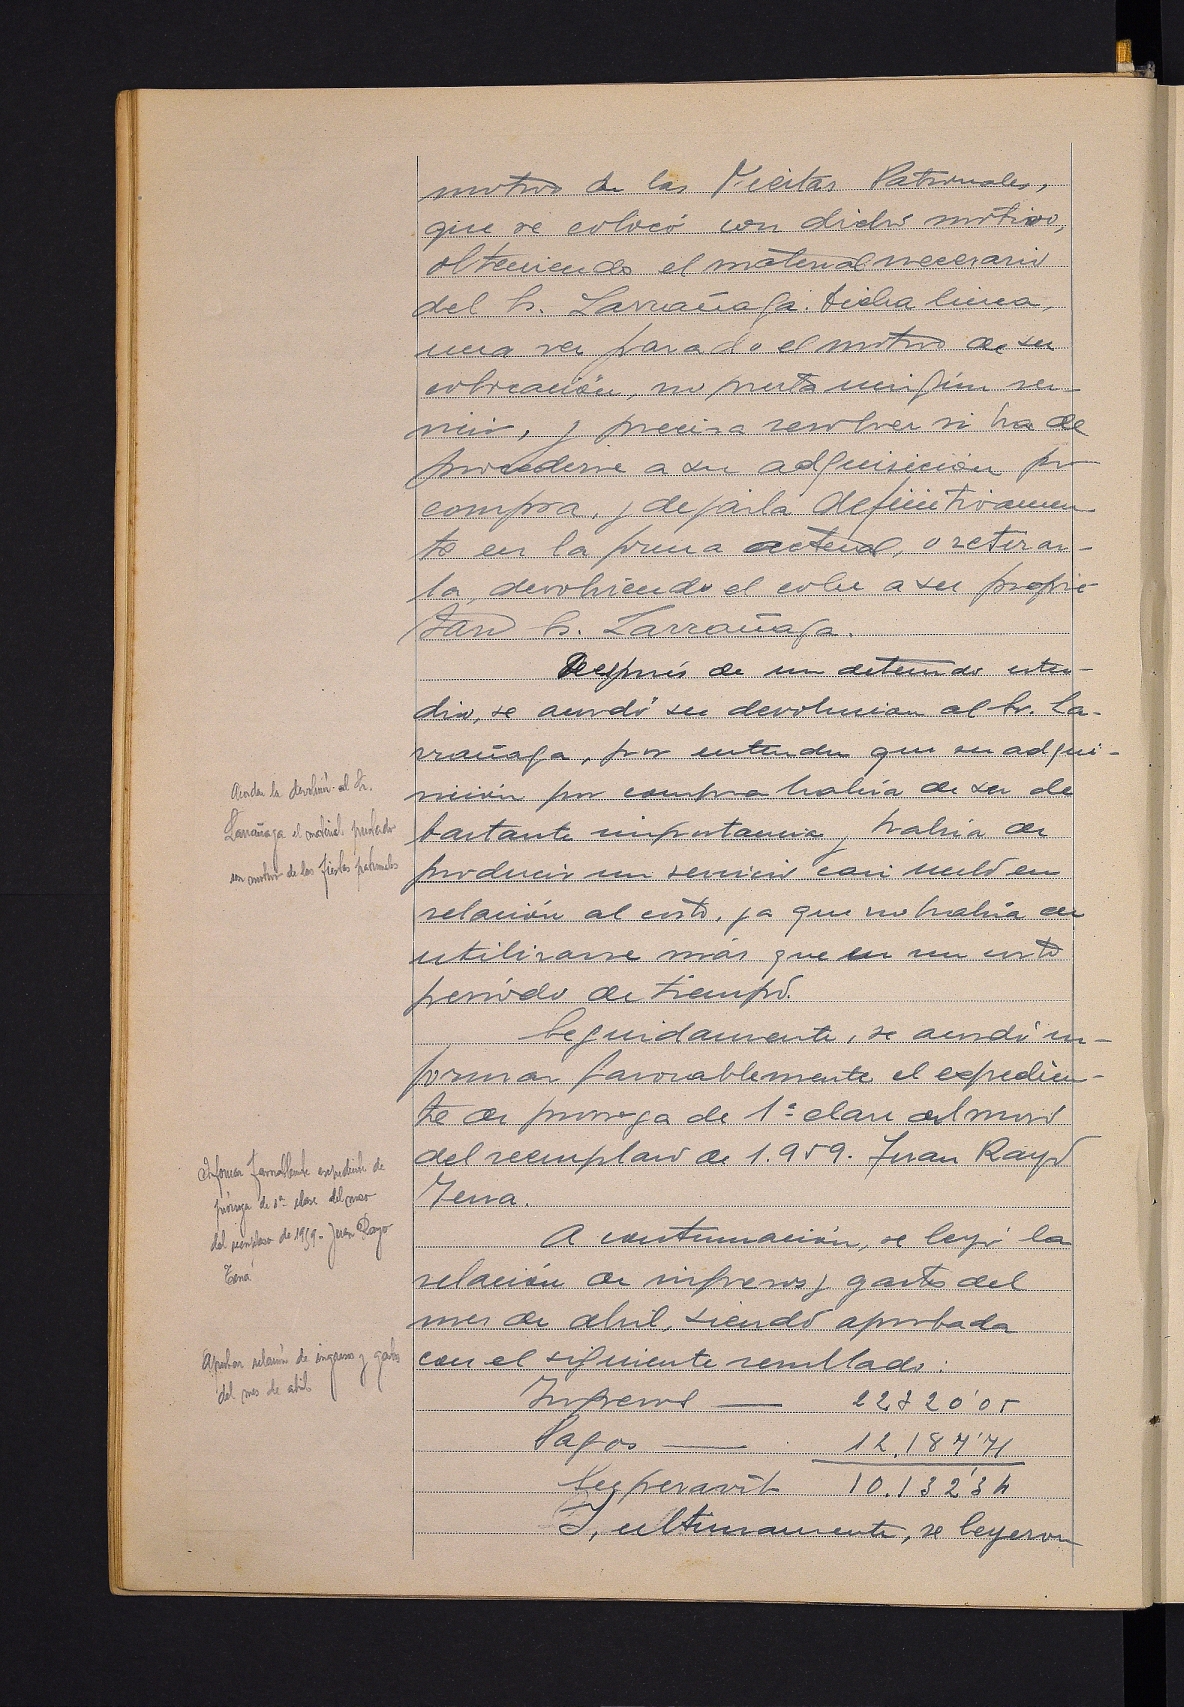 motivo de las Fiestas Patronales,
que se colocó con dicho motivo,
obteniendo el material necesario
del Sr. Larrañaga. Dicha linea,
una vez pasado el motivo de su
colocación, no presta ningún ser-
vicio, y precisa resolver si ha de
procederse a su adquisición por
compra, y dejarla definitivamen-
te en la forma actual, o retirar-
la, devolviendo el cable a su propie-
tario Sr. Larrañaga.
Después de un detenido estu-
dio, se acordó su devolucion al Sr. La-
rrañaga, por entender que su adqui-
sición por compra habria de ser de
bastante importancia y habria de
producir un servicio casi nulo en
relación al costo, ya que no habria de
utilizarse más que en un corto
periodo de tiempo.
Acordar la devolución al Sr.
Larrañaga el material prestado
con motivo de las fiestas patronales
Seguidamente, se acordó in-
formar favorablemente el expedien-
te de prorroga de 1ª clase del mozo
del reemplazo de 1.959. Juan Rayo
Tena.
Informar favorablemente expediente de
prórroga de 1ª clase del mozo
del reemplazo de 1959 - Juan Rayo
Tena
A continuación, se leyó la
relación de ingresos y gastos del
mes de abril, siendo aprobada
con el siguiente resultado:
Aprobar relación de ingresos y gastos
del mes de abril
Ingresos — 22320'05
Pagos — 12.187'71
Superavit 10.132'34
Y, ultimamente, se leyeron